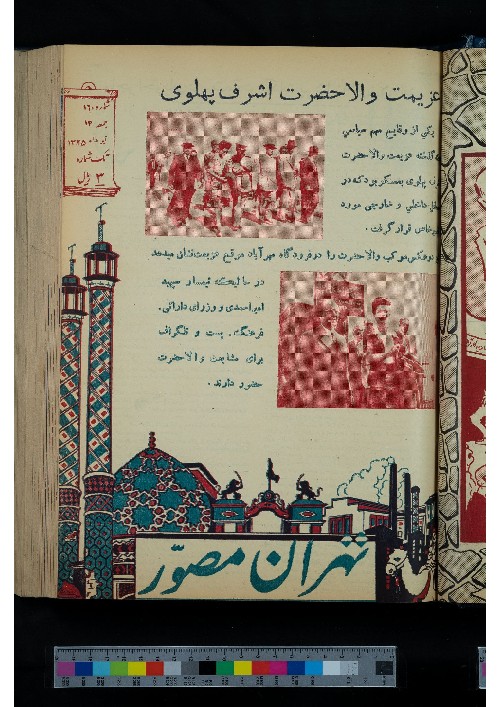 عزیمت والاحضرت اشرف پهلوی
شماره ۱۶۰
جمعه ۱۴
تیر ماه ۱۳۲۵
تک شماره
۳ ریال
یکی از وقایع مهم سیاسی
گذشته عزیمت والاحضرت
پهلوی بمسکو بود که در
داخلی و خارجی مورد
خاص قرار گرفت .
موکب والاحضرت را در فرودگاه مهرآباد موقع عزیمت نشان میدهد
در حالیکه تیمسار سپهبد
امیراحمدی و وزرای دارائی،
فرهنگ، پست و تلگراف
برای مشایعت والاحضرت
حضور دارند .
تهران مصوّر